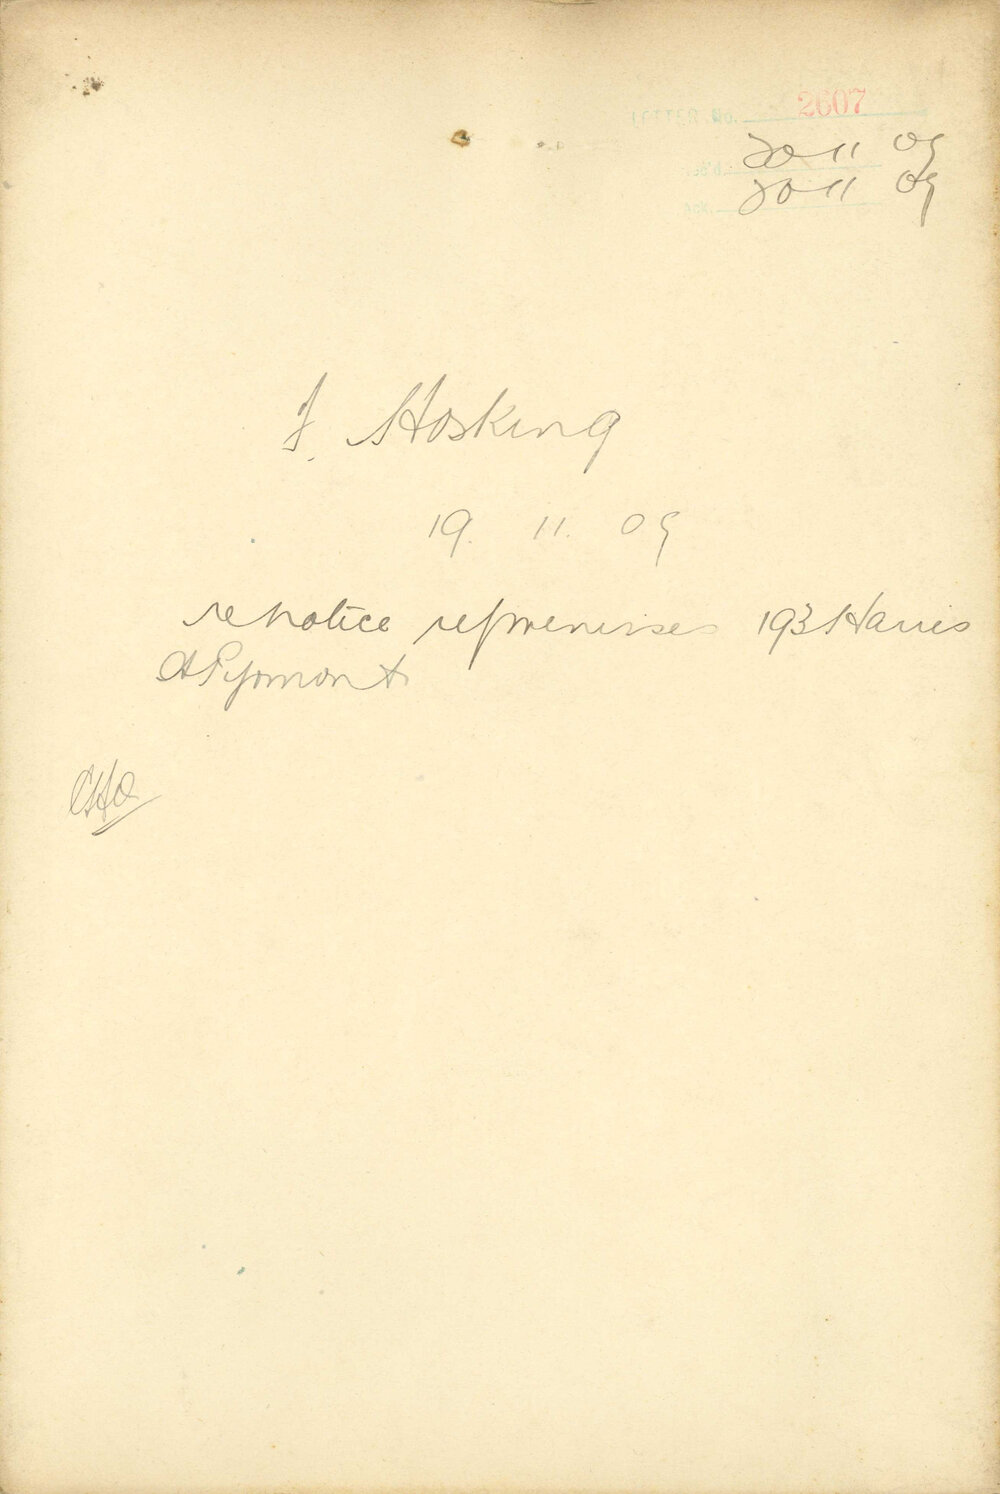 2607
20 11 09
20 11 09
J. Hosking
19. 11. 09
re notice re premises 193 Harris
St Pyrmont
CHO